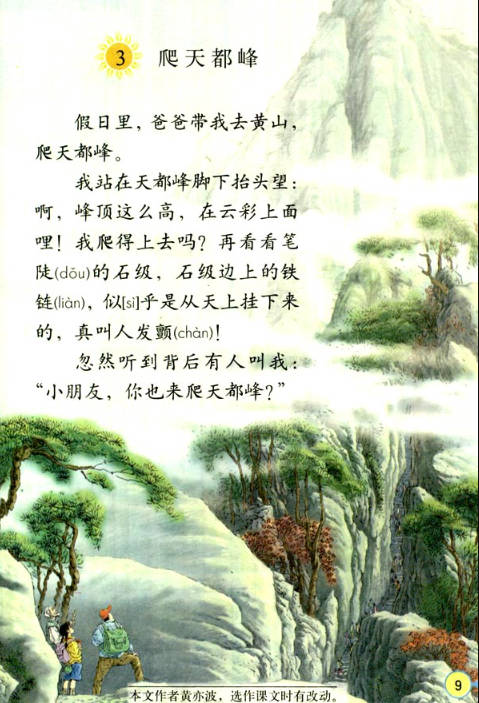 3 爬天都峰
假日里，爸爸带我去黄山，
爬天都峰。
我站在天都峰脚下抬头望：
啊，峰顶这么高，在云彩上面
哩！我爬得上去吗？再看看笔
陡(dǒu)的石级，石级边上的铁
链(liàn)，似[sì]乎是从天上挂下来
的，真叫人发颤(chàn)！
忽然听到背后有人叫我：
“小朋友，你也来爬天都峰？”
本文作者黄亦波，选作课文时有改动。
9